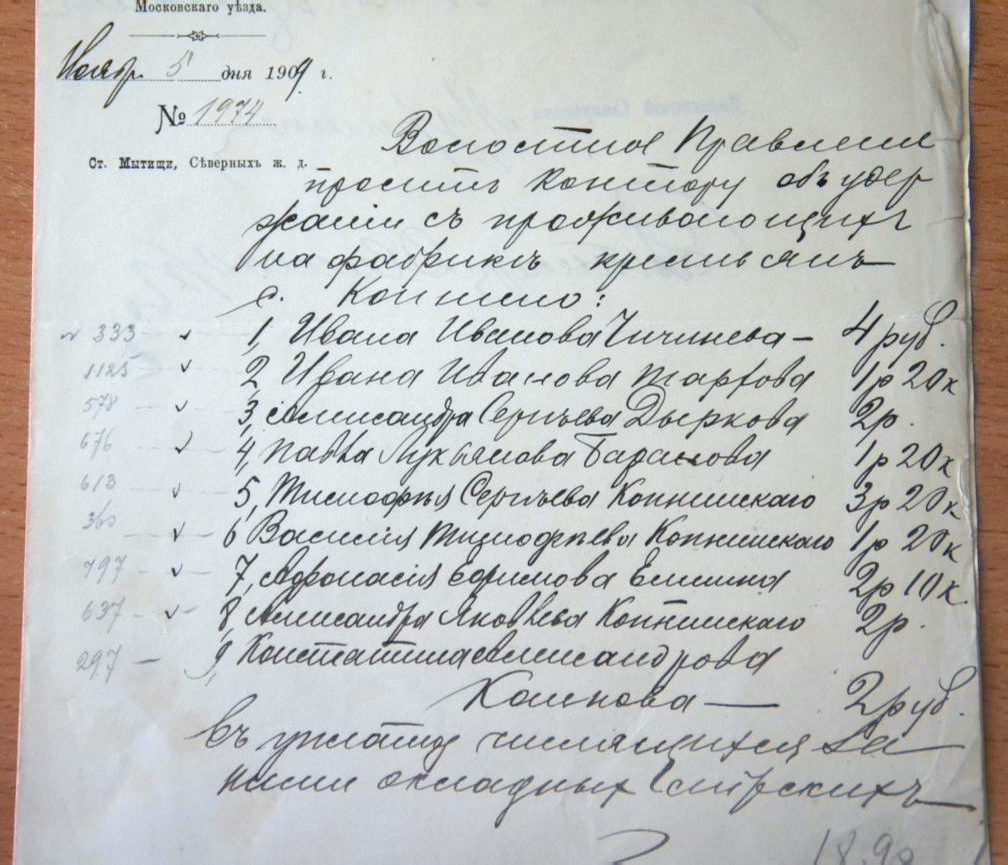 Московскаго уѣзда.
Ноябр. 5 дня 1909 г.
№ 1974
Ст. Мытищи, Сѣверныхъ ж. д.
Волостное Правление
проситъ контору объ удер
жаніи съ проживающихъ
на фабрикѣ крестьянъ
с. Копнино:
333 1, Ивана Иванова Чичинева — 4 руб.
1125 2 Ивана Иванова 1р 20к
578 3, Александра Сергѣева Дыркова 2р.
676 4, Павла Лукьянова Баранова 1р 20к
613 5, Тимофея Сергѣева Копнинскаго 3р 20к
360 6 Василія Тимофѣева Копнинскаго 1р 20к
797 7, Афонасія Ефимова Ешина 2р 10к.
637 8 Александра Яковлева Копнинскаго 2р.
297 — 9, Констатина Александрова
— 2 руб.
въ уплату числящихся за
ними окладныхъ
18.90